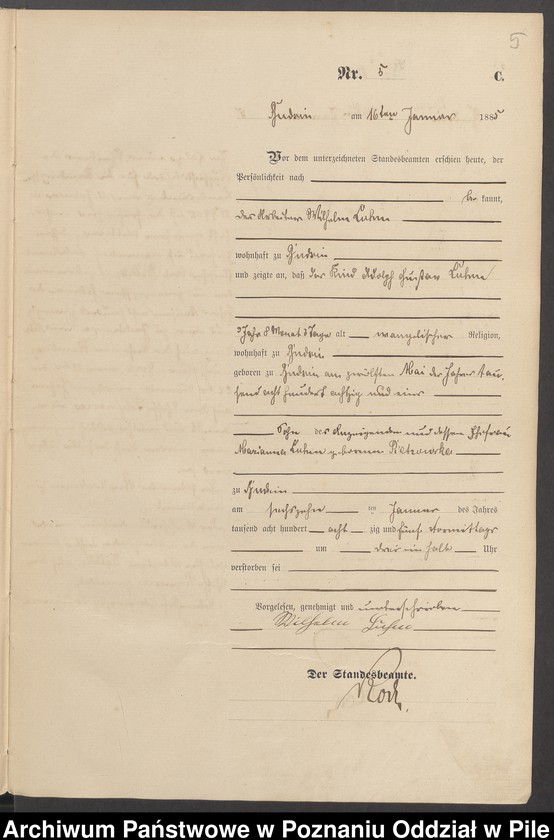 5
Nr. 5 C.
am 16ten Januar 1885
Vor dem unterzeichneten Standesbeamten erschien heute, der
Persönlichkeit nach
be kannt,
der Arbeiter Wilhelm
wohnhaft zu
und zeigte an, daß das Kind Adolph Gustav
3 Jahr 8 Monat 3 Tage alt evangelischer Religion,
wohnhaft zu
geboren zu am zwölften Mai des Jahres tau-
send acht hundert achtzig und eins
Sohn des Anzeigenden und dessen Ehefrau
Marianna geborenen
zu
am sechszehn ten Januar des Jahres
tausend acht hundert acht zig und fünf Vormittags
um drei ein halb Uhr
verstorben sei
Vorgelesen, genehmigt und unterschrieben
Wilhelm
Der Standesbeamte.
Koch.
Archiwum Państwowe w Poznaniu Oddział w Pile